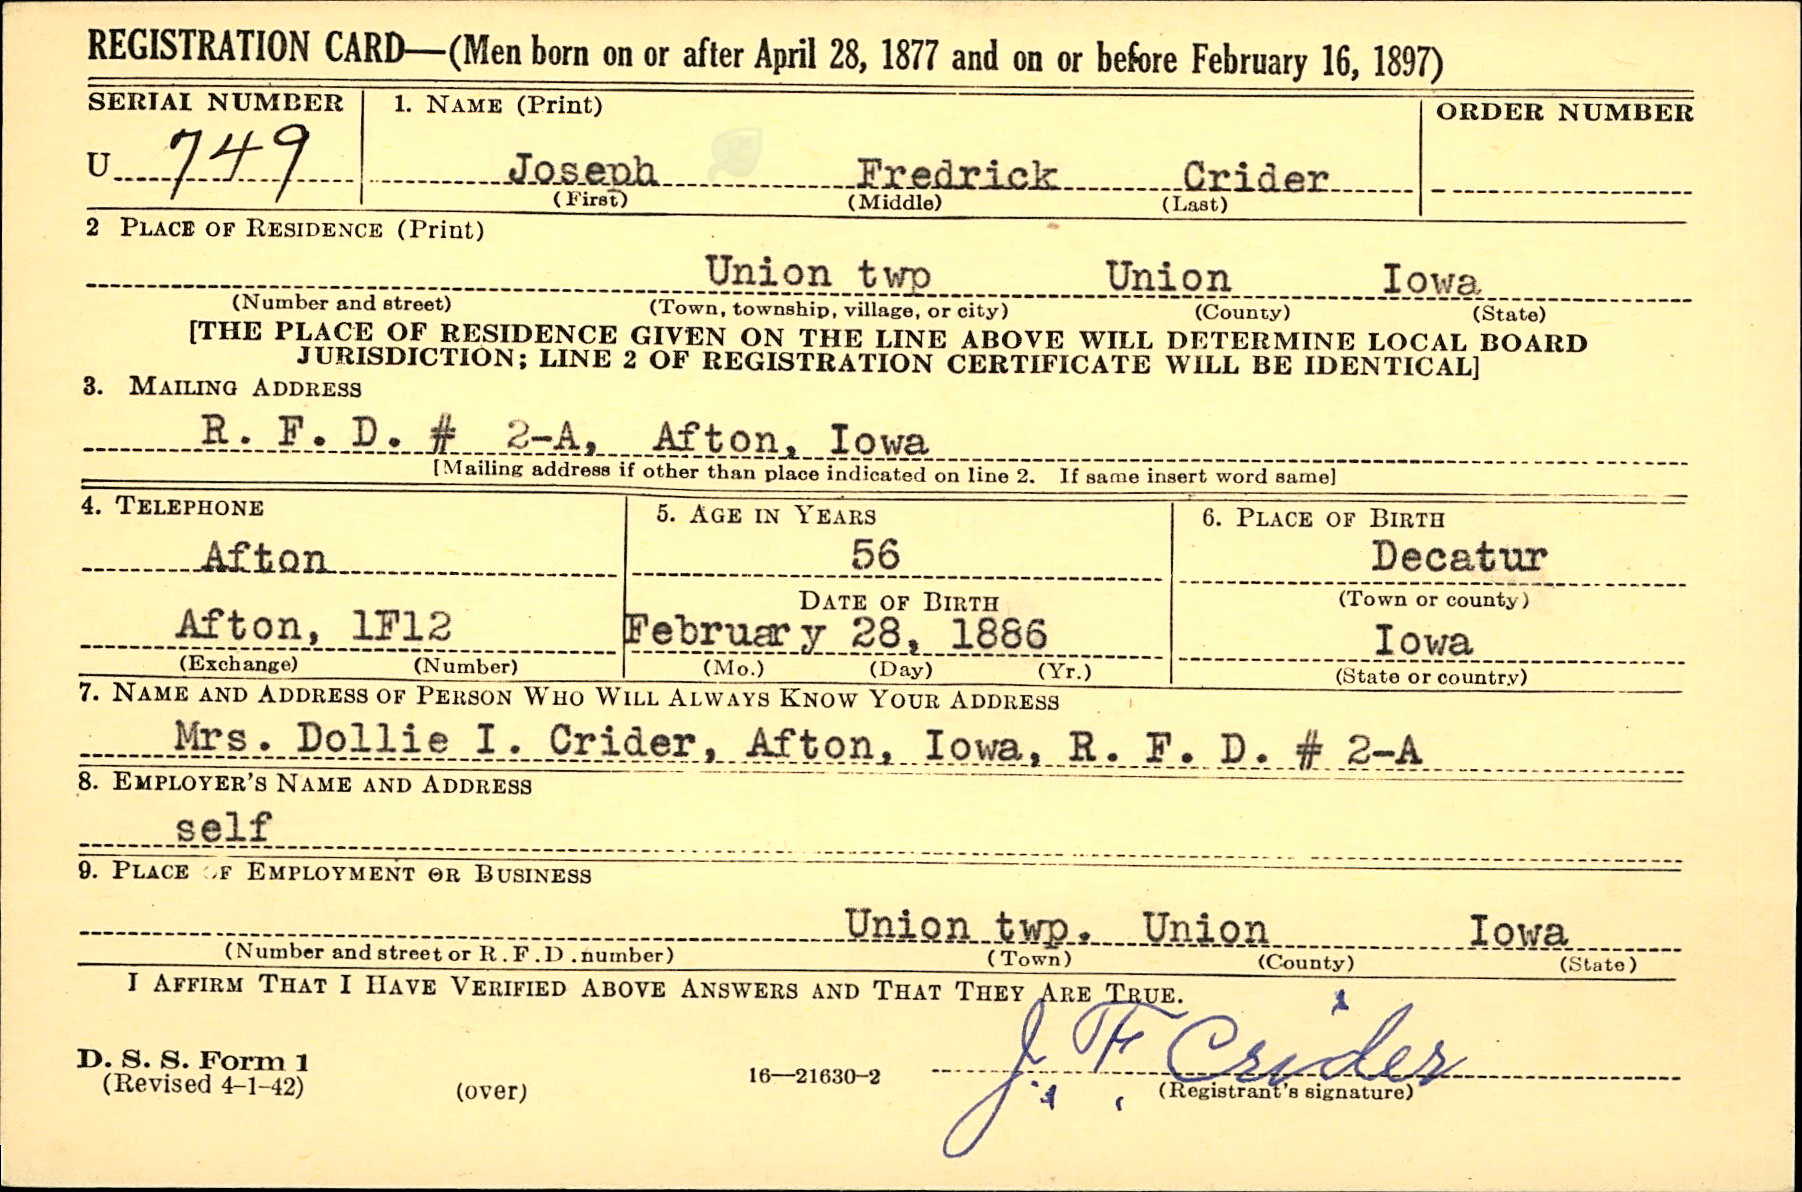 REGISTRATION CARD—(Men born on or after April 28, 1877 and on or before February 16, 1897)
SERIAL NUMBER 1. NAME (Print) ORDER NUMBER
U 749 Joseph Fredrick Crider
(First) (Middle) (Last)
2 PLACE OF RESIDENCE (Print)
Union twp Union Iowa
(Number and street) (Town, township, village, or city) (County) (State)
[THE PLACE OF RESIDENCE GIVEN ON THE LINE ABOVE WILL DETERMINE LOCAL BOARD
JURISDICTION; LINE 2 OF REGISTRATION CERTIFICATE WILL BE IDENTICAL]
3. MAILING ADDRESS
R. F. D. # 2-A, Afton, Iowa
[Mailing address if other than place indicated on line 2. If same insert word same]
4. TELEPHONE 5. AGE IN YEARS 6. PLACE OF BIRTH
Afton 56 Decatur
DATE OF BIRTH (Town or county)
Afton, 1F12 February 28, 1886 Iowa
(Exchange) (Number) (Mo.) (Day) (Yr.) (State or country)
7. NAME AND ADDRESS OF PERSON WHO WILL ALWAYS KNOW YOUR ADDRESS
Mrs. Dollie I. Crider, Afton, Iowa, R. F. D. # 2-A
8. EMPLOYER'S NAME AND ADDRESS
self
9. PLACE OF EMPLOYMENT OR BUSINESS
Union twp. Union Iowa
(Number and street or R.F.D. number) (Town) (County) (State)
I AFFIRM THAT I HAVE VERIFIED ABOVE ANSWERS AND THAT THEY ARE TRUE.
J. F. Crider
D. S. S. Form 1
(Revised 4-1-42) (over) 16—21630-2 (Registrant's signature)